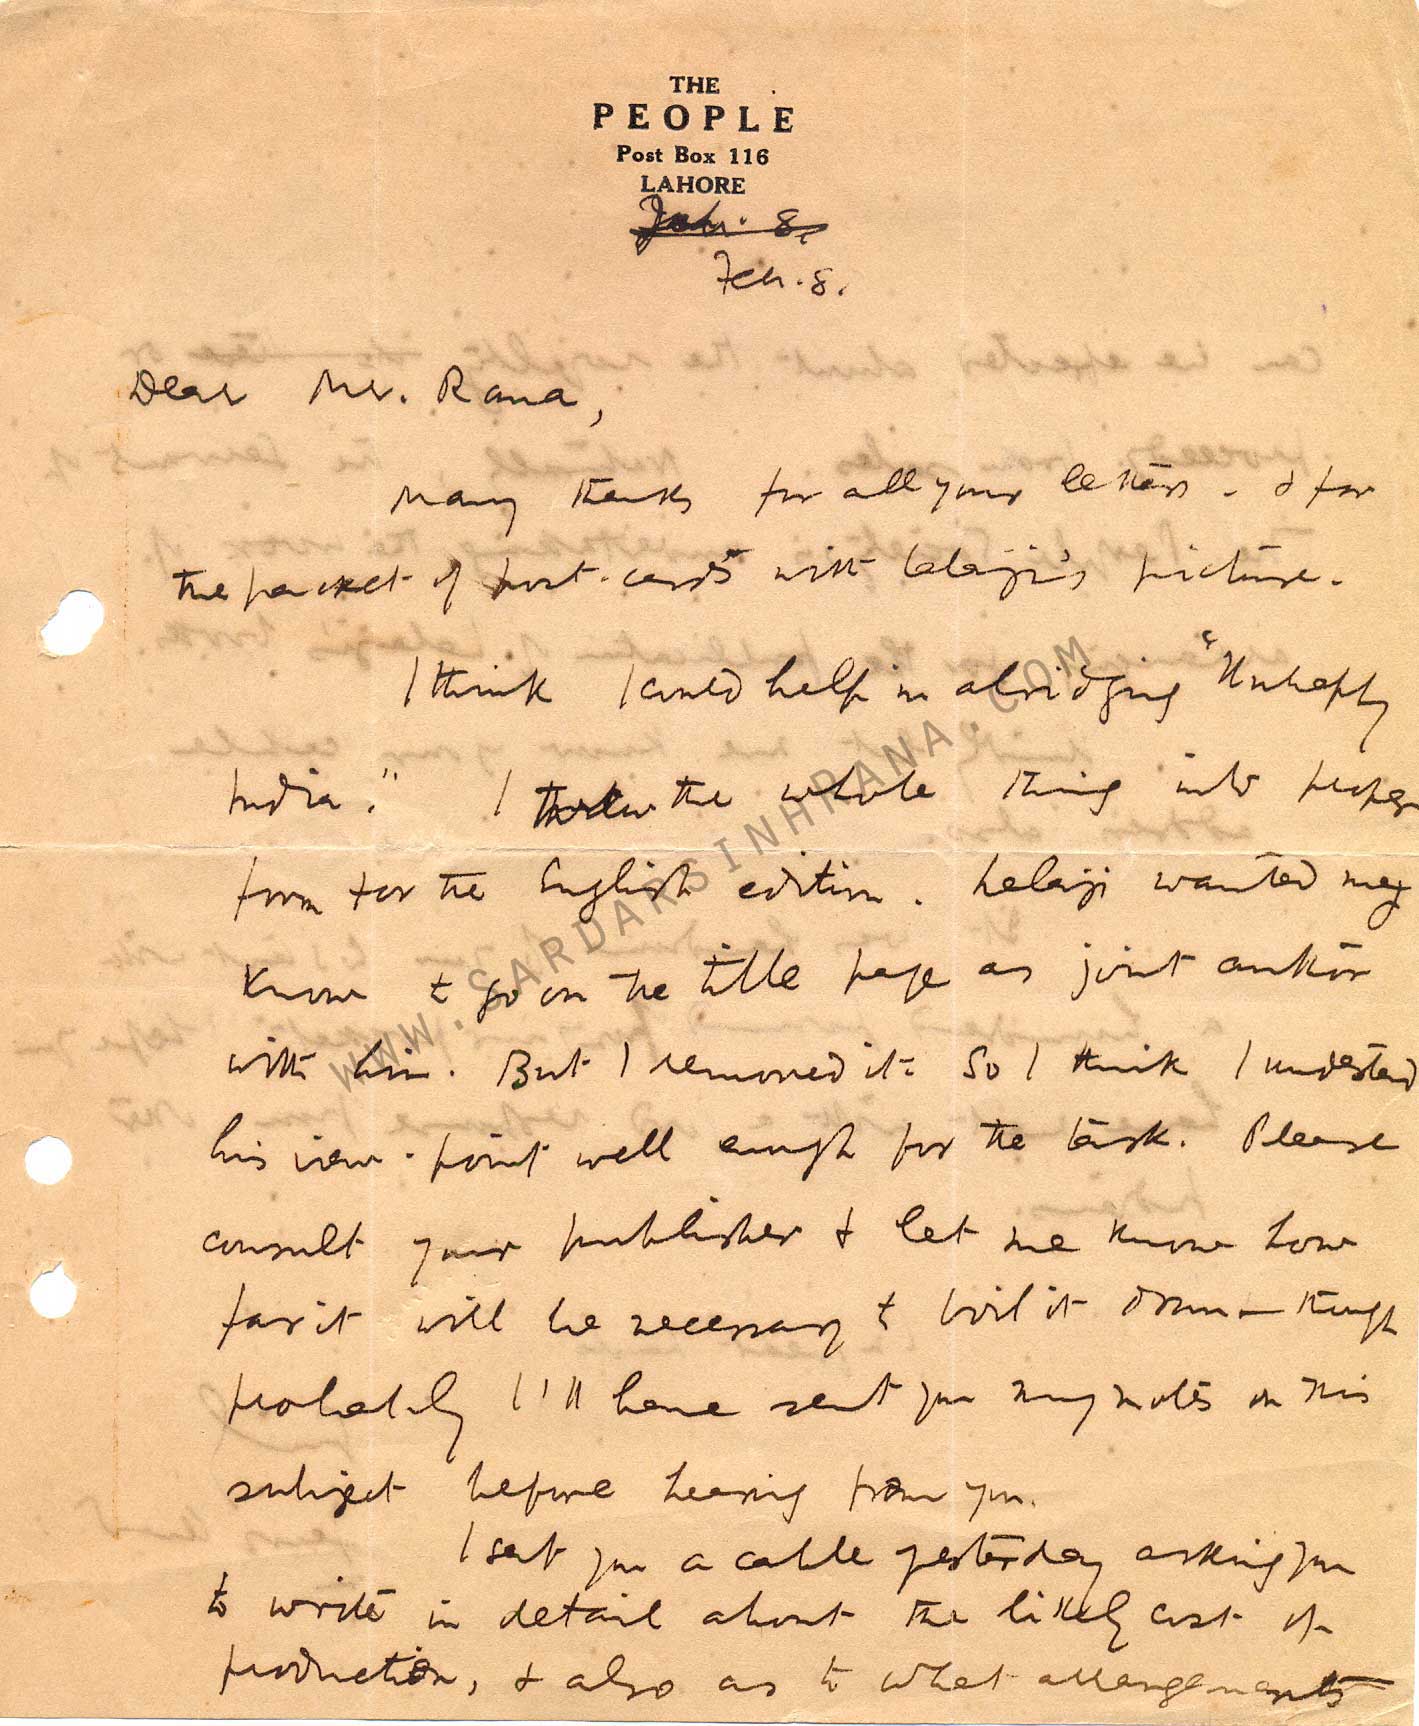 THE
PEOPLE
Post Box 116
LAHORE
Feb. 8.
Feb. 8.
Dear Mr. Rana,
Many thanks for all your letters - & for
the packet of post-cards with Lalaji's picture.
I think I could help in abridging "Unhappy
India." I threw the whole thing into proper
form for the English edition. Lalaji wanted my
name to go on the title page as joint author
with him. But I removed it. So I think I understand
his view-point well enough for the task. Please
consult your publisher & let me know how
far it will be necessary to boil it down - though
probably I'll have sent you my notes on this
subject before hearing from you.
I sent you a cable yesterday asking you
to write in detail about the likely cost of
production, & also as to what arrangements
WWW.SARDARSINHRANA.COM